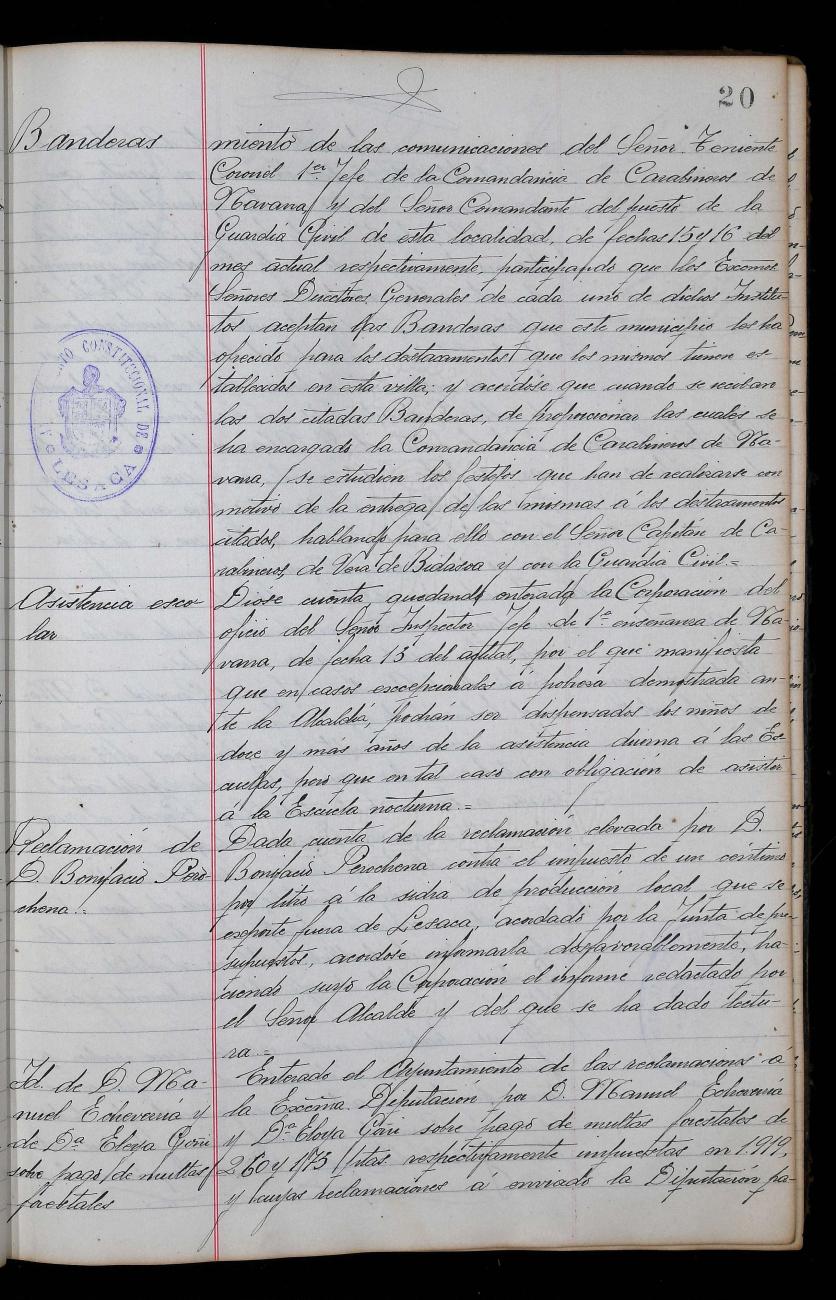 20
Banderas
miento de las comunicaciones del Señor Teniente
Coronel 1er. Jefe de la Comandancia de Carabineros de
Navarra, y del Señor Comandante del puesto de la
Guardia Civil de esta localidad, de fechas 15 y 16 del
mes actual respectivamente, participando que los Excmos.
Señores Directores Generales de cada uno de dichos Institu-
tos aceptan las Banderas que este municipio les ha
ofrecido para los destacamentos que los mismos tienen es-
tablecidos en esta villa, y acordóse que cuando se reciban
las dos citadas Banderas, de proporcionar las cuales se
ha encargado la Comandancia de Carabineros de Na-
varra, se estudien los festejos que han de realizarse con
motivo de la entrega de las mismas á los destacamentos
citados, hablando para ello con el Señor Capitán de Ca-
rabineros, de Vera de Bidasoa y con la Guardia Civil.=
CONSTITUCIONAL DE
LESACA
Asistencia esco-
lar
Dióse cuenta quedando enterada la Corporación del
oficio del Señor Inspector Jefe de 1ª enseñanza de Na-
varra, de fecha 13 del actual, por el que manifiesta
que en casos excepcionales á pobreza demostrada an-
te la Alcaldía, podrán ser dispensados los niños de
doce y mas años de la asistencia diurna á las Es-
cuelas, pero que en tal caso con obligación de asistir
á la Escuela nocturna.=
Reclamación de
D. Bonifacio Pero
chena.=
Dada cuenta de la reclamación elevada por D.
Bonifacio Perochena contra el impuesto de un céntimo
por litro á la sidra de producción local que se
exporte fuera de Lesaca, acordado por la Junta de pre-
supuestos, acordóse informarla desfavorablemente, ha-
ciendo suyo la Corporación el informe redactado por
el Señor Alcalde y del que se ha dado lectu-
ra.=
Id. de D. Ma-
nuel Echeverría y
de Dª Eloya Goñi
sobre pago de multas
forestales
Enterado el Ayuntamiento de las reclamaciones á
la Excma. Diputación por D. Manuel Echeverría
y Dª Eloya Goñi sobre pago de multas forestales de
260 y 175 ptas. respectivamente impuestas en 1.919,
y cuyas reclamaciones á enviado la Diputación pa-